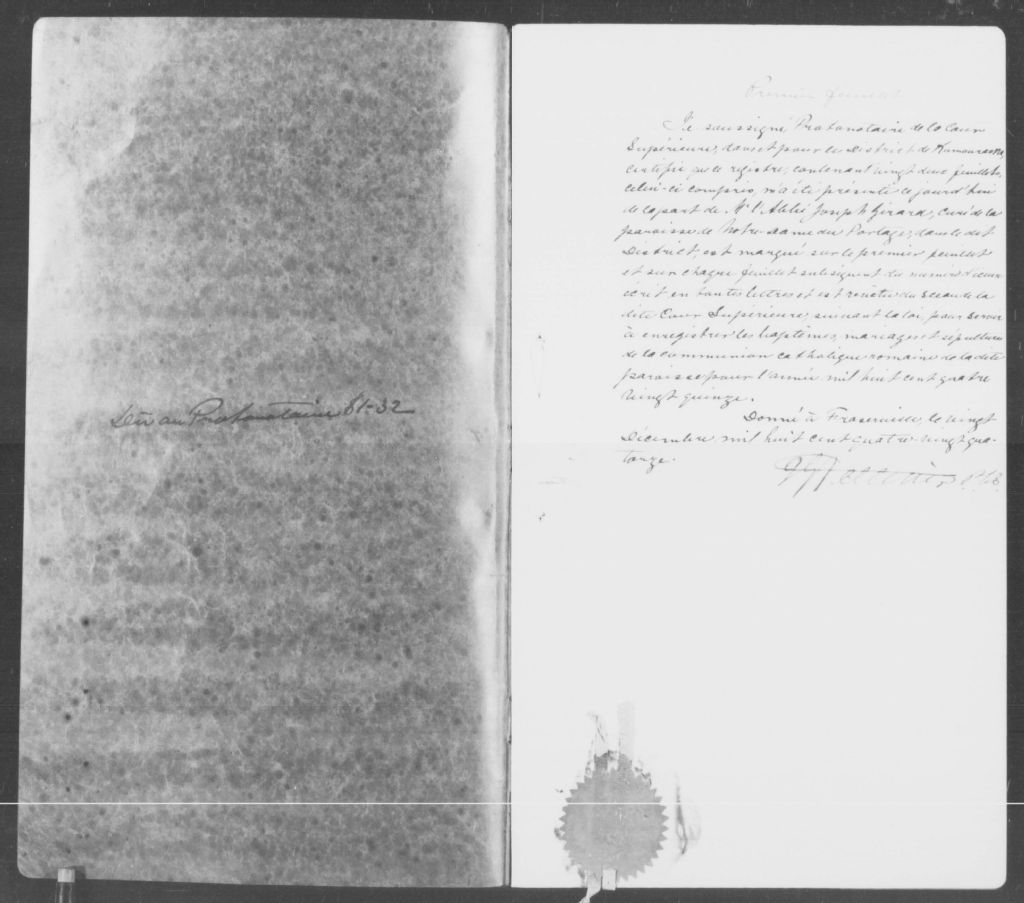 Dû au Protonotaire $1-32
Premier feuillet
Je soussigné Protonotaire de la Cour
Supérieure, dans et pour le District de Kamouraska,
certifie que le registre, contenant vingt deux feuillets,
celui-ci compris, m'a été présenté ce jourd'hui
de la part de Mr l'Abbé Joseph Girard, curé de la
paroisse de Notre-Dame du Portage, dans le dit
District, est marqué sur le premier feuillet
et sur chaque feuillet subséquent du numéro d'icelui
écrit en toutes lettres et est revêtu du sceau de la
dite Cour Supérieure, suivant la loi, pour servir
à enregistrer les baptêmes, mariages et sépultures
de la communion catholique romaine de la dite
paroisse pour l'année mil huit cent quatre
vingt quinze.
Donné à Fraserville, le vingt
Décembre mil huit cent quatre-vingt qua-
torze.
Pelletier P.C.S.